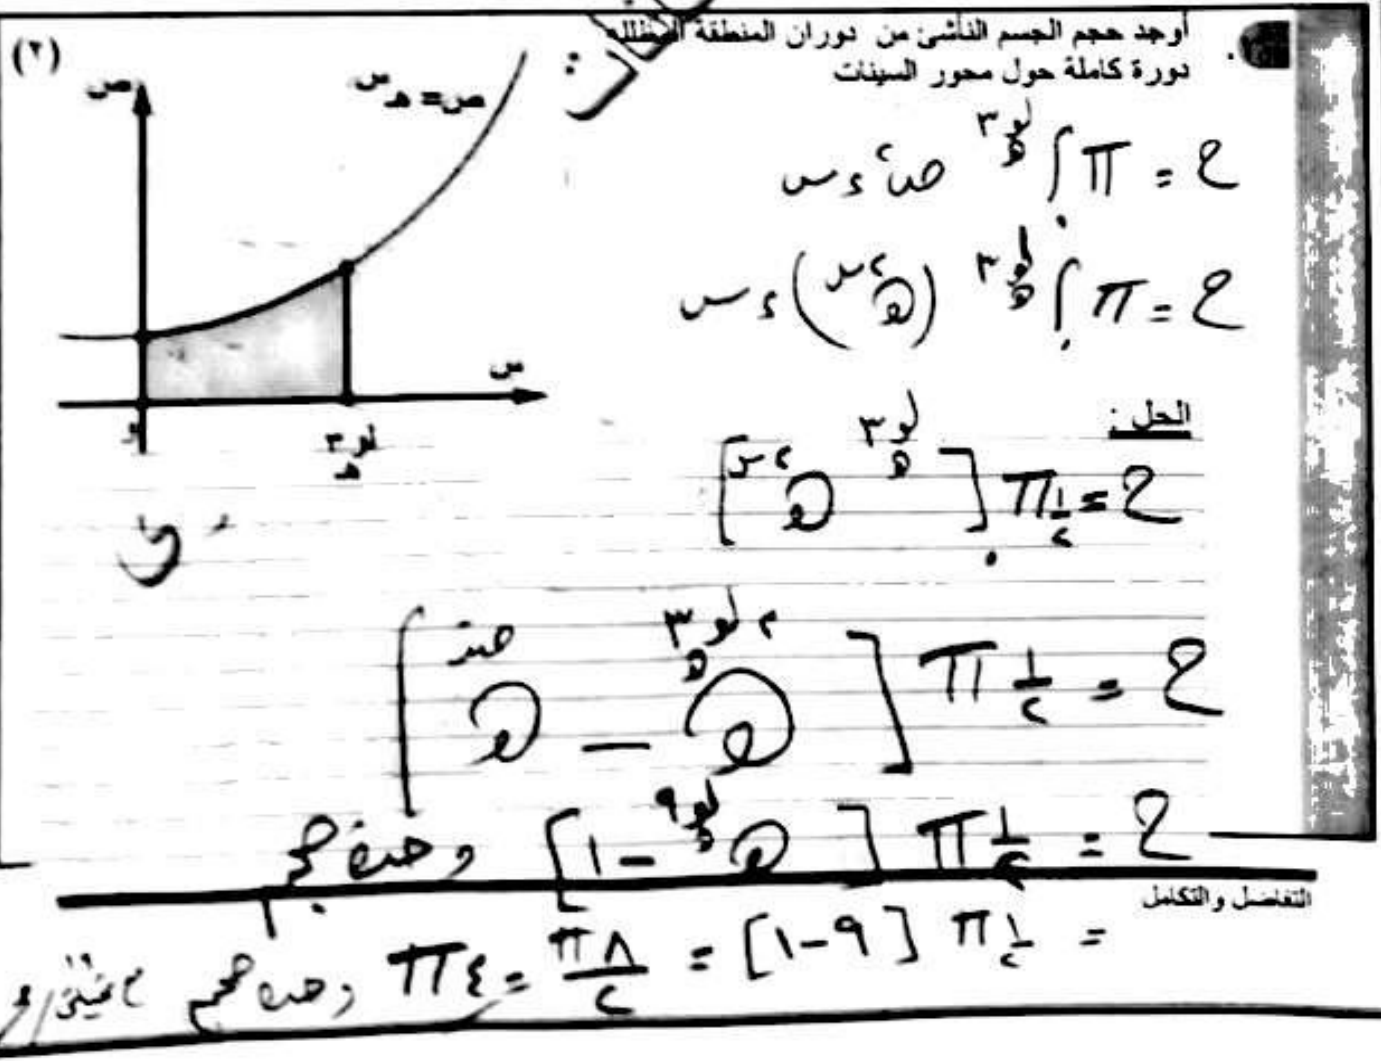 أوجد حجم الجسم الناشئ من دوران المنطقة المظللة
دورة كاملة حول محور السينات
(٢)
ص
ص = هـ^س
س
و
لو_هـ ٣
ح = π ∫_٠^{لو_هـ ٣} ص^٢ ء س
ح = π ∫_٠^{لو_هـ ٣} (هـ^{٢س}) ء س
الحل :
ح = ١/٢ π [هـ^{٢س}]_٠^{لو_هـ ٣}
ح = ١/٢ π [هـ^{٢ لو_هـ ٣} - هـ^{صفر}]
ح = ١/٢ π [هـ^{لو_هـ ٩} - ١] وحدة حجم
التفاضل والتكامل
= ١/٢ π [٩ - ١] = ٨π/٢ = ٤π وحدة حجم